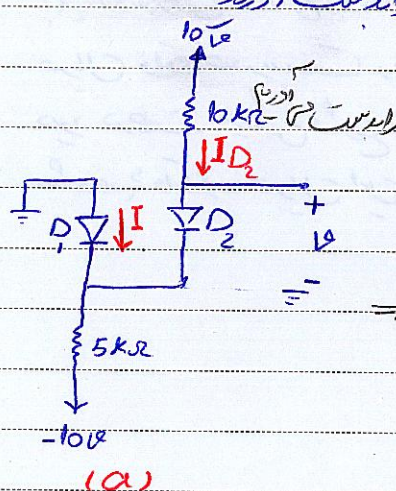 10v
10kΩ
I D₂
D₁ I D₂
+
v
-
5kΩ
-10v
(a)